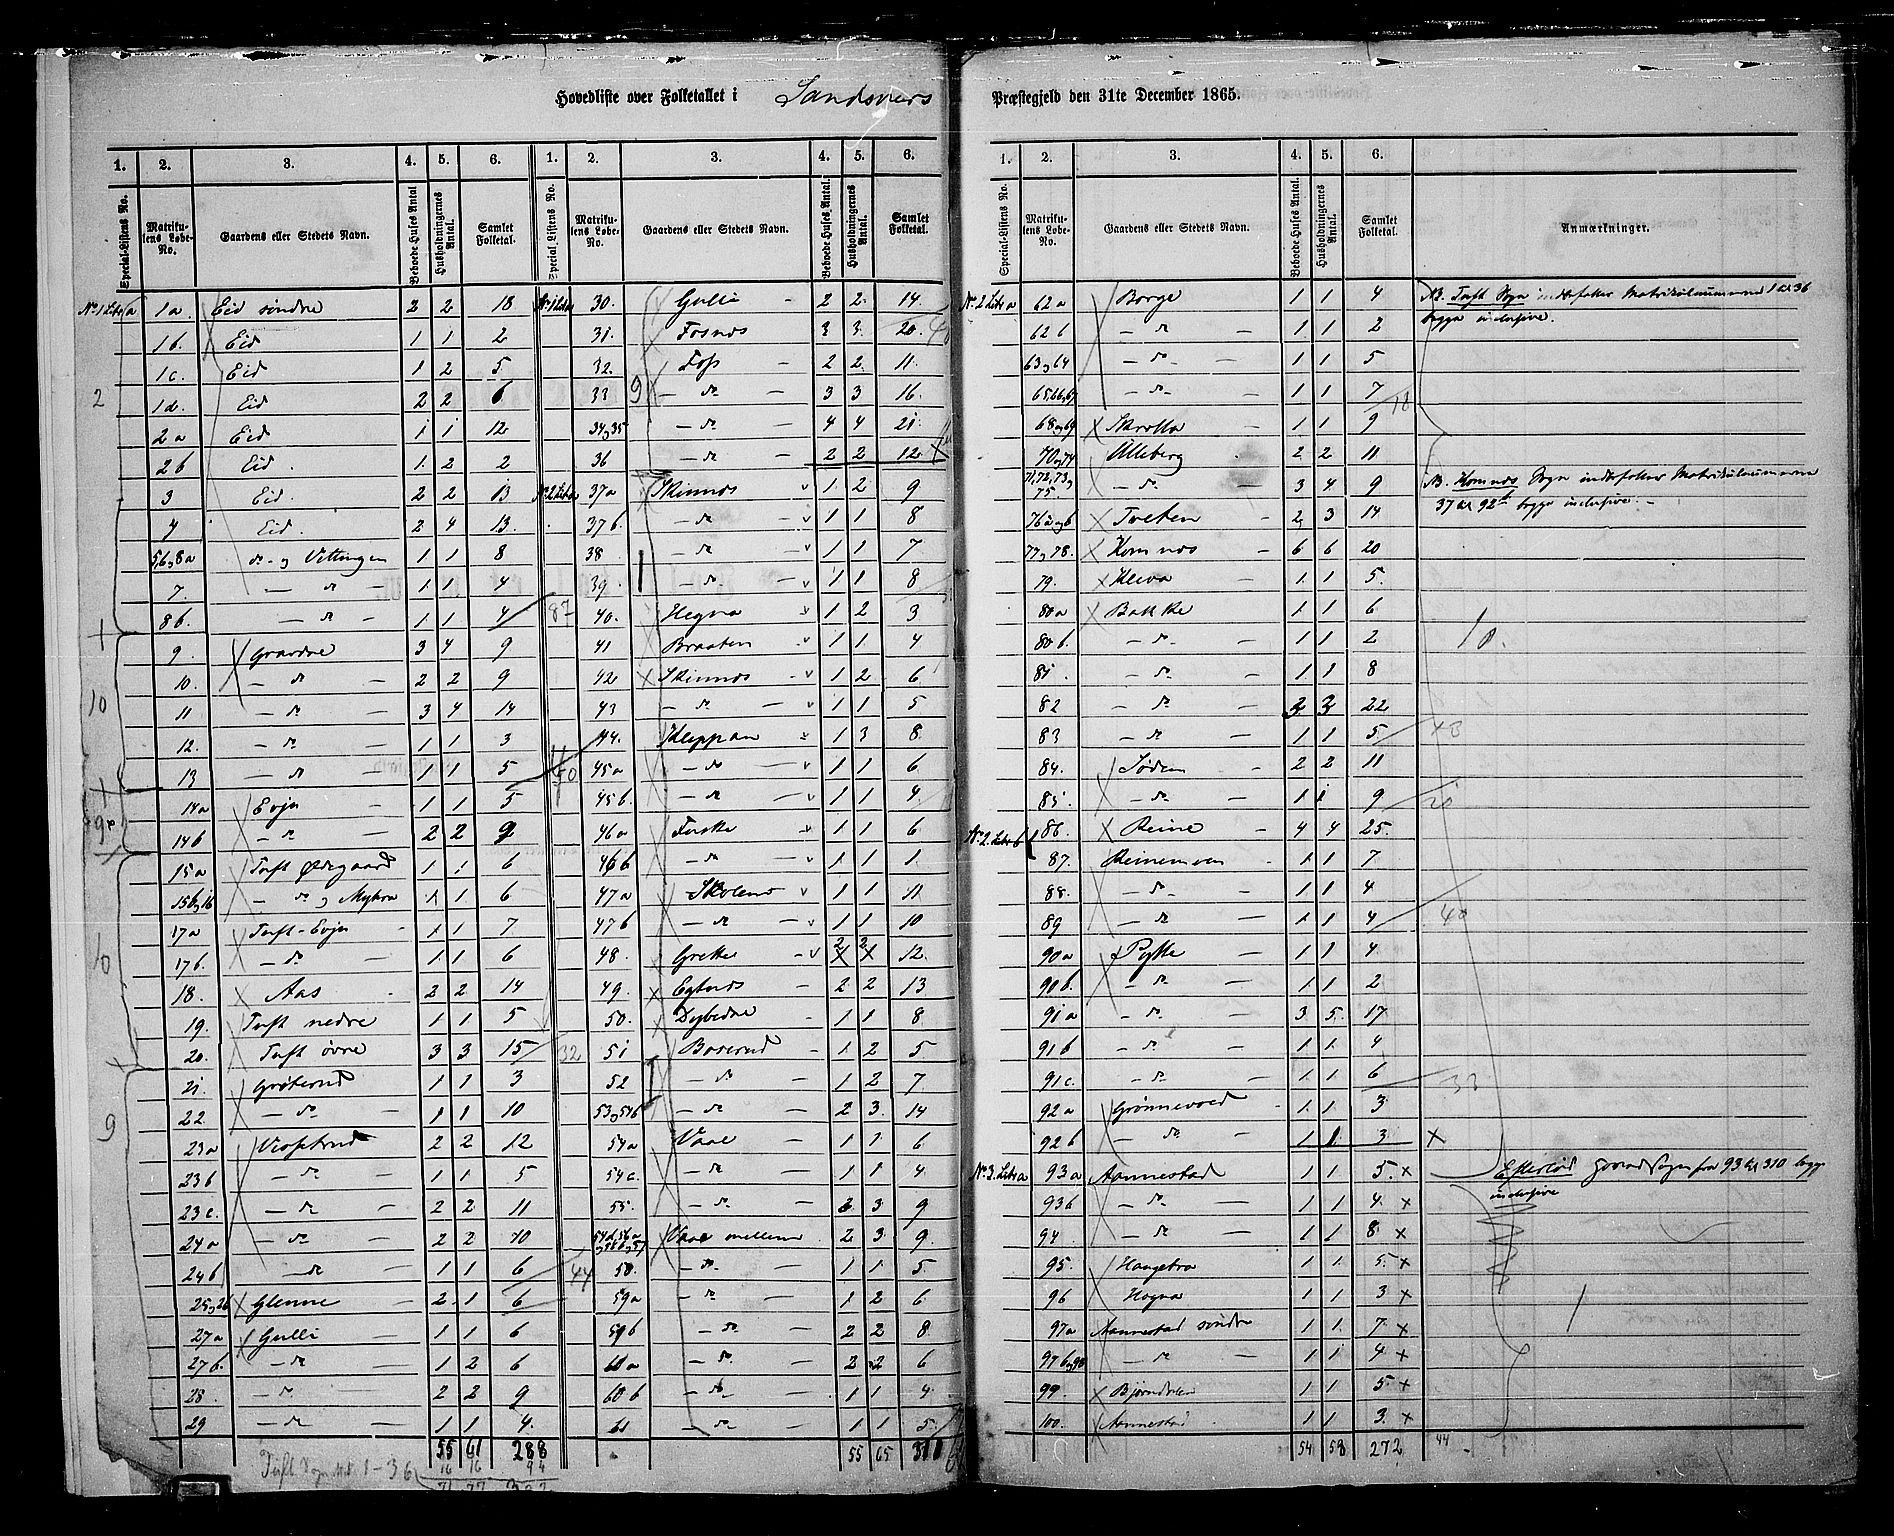 Hovedliste over Folketallet i Sandsvers Præstegjeld den 31te December 1865.
1. 2. 3. 4. 5. 6. 1. 2. 3. 4. 5. 6.
Special-Listens No. Matrikulens Løbe-No. Gaardens eller Stedets Navn. Beboede Huses Antal. Husholdningernes Antal. Samlet Folketal.
No 1 Litr a 1a Eid søndre 2 2 18
1b. Eid 1 1 2
1c. Eid 1 2 5
1d. Eid 2 2 6
2a Eid 1 1 12
2b Eid. 1. 2 2
3 Eid. 2 2 13
4 Eid. 2 4 13.
5,6og8a do og Vittingen 1 1 8
7. — do — 1 1 4
8b. — do — 1 1 4 87
9. Gravdne 3 4 9
10. — do — 2 2 9
11 — do — 3 4 14
12. — do — 1 1 3
13 — do — 1 1 5 40
14a Evju 1 1 5
14b — do — 2 2 9
15a Tuft Ødegaard 1 1 6
15bog16 — do og Myhra 1 1 6
17a Tuft-Evju 1 1 7
17b. — do — 1 1 6
18. Aas 2 2 14
19. Tuft nedre 1 1 5
20. Tuft øvre 3 3 15 32
21. Grøterud 1 1 3
22 — do — 1 1 10
23a 2 2 12
23b — do — 1 1 5
23c. — do — 2 2 11
24a — do — 2 2 10
24b — do 1 1 6 44
25og26 Glenne — 2 1 6
27a Gulli 1 1 6
27b. — do — 1 2 6
28. — do — 2 2 9
29 — do — 1 1 4.
55 61 288
Tuft Sogn No. 1-36 16 16 94
71 77 382
No 1 Litr a 30. Gulli — 2 2 14.
31. Fosnes 3 3. 20.
32. Foss — 2 2 11.
33 — do — 3 3 16.
34og35 — do — 4 4 21.
36 — do — 2 2 12
No 2 Litr a 37a Skinnes 1 2 9
37b. — do 1 1 8
38. — do — 1 1 7
39. — do. — 1 1 8
40. Hegna 1 2 3
41 Braaten 1 1 4
42 Skinnes 1 2 6
43 — do — 1 1 5
44. Kleppan 1 3 8.
45a — do — 1 1 6.
45b. — do — 1 1 4.
46a Foske 1 1 6
46b — do — 1 1 1.
47a 1 1 11
47b — do — 1 1 10
48. Grette 2 2 12.
49. 2 2 13
50. 1 1 8
51 Boserud 1 2 5
52 — do — 1 2 7
53og54b — do — 2 3. 14
54a Vaae 1 1 6
54c. — do — 1 1 4
55. — do — 3 9
Vaae mellem 2 3 9.
— do. — 1 1 5.
59a — do — 1 2 6.
59b — do — 2 2 8
60a — do — 2 2 6
60b — do — 1 1 4.
61 — do — 1 1 5.
55 65 311
1. 2. 3. 4. 5. 6.
Special-Listens No. Matrikulens Løbe-No. Gaardens eller Stedets Navn. Beboede Huses Antal. Husholdningernes Antal. Samlet Folketal. Anmærkninger.
No. 2 Litr a 62a Borge 1 1 4 NB. Tuft Sogn indbefatter Matrikulnummerne 1 til 36
62b — do — 1 1 2 begge inclusive.
63og64 — do — 1 1 5
65,66og67 — do — 1 1 7 18
68og69 1 1 9
70og74 Ulleberg 2 2 11
71,72,73og75 — do — 3 4 9 NB. Komnes Sogn indbefatter Matrikulnummerne
76aogb Tveten 2 3 14 37 til 92b begge inclusive. —
77og78. Komnes — 6 6 20
79. Kleva — 1 1 5.
80a Bakke 1 1 6
80b. — do — 1 1 2 10.
81. — do — 1 1 8
82 — do — 3 3 22
83 — do — 1 1 5 43
84. 2 2 11
85. — do — 1 1 9 20
No. 2 Litr b 86. Reine — 4 4 25.
87. Reinemoen 1 1 7
88. — do — 1 1 4
89 — do — 1 1 4 40
90a 1 1 4.
90b. — do — 1 1 2
91a — do — 3 5. 17
91b — do — 1 1 4
91c. — do — 1 1 6 33
92a Grønnevold 1 1 3
92b — do — 1 1 3 X
No. 3 Litr a 93a Aannestad 1 1 5. x Eftelød Hovedsogn fra 93 til 310 begge
93b — do — 1 1 4. x inclusive
94. — do — 1 1 8 x
95. 1 1 5. x
96 Hogna 1 1 3 x
97a Aannestad søndre 1 1 7. x
97bog98 — do 1 1 4 x
99. Bjørndalen 1 1 5. x
100. Aannestad 1 1 3. x
54 58 272 44